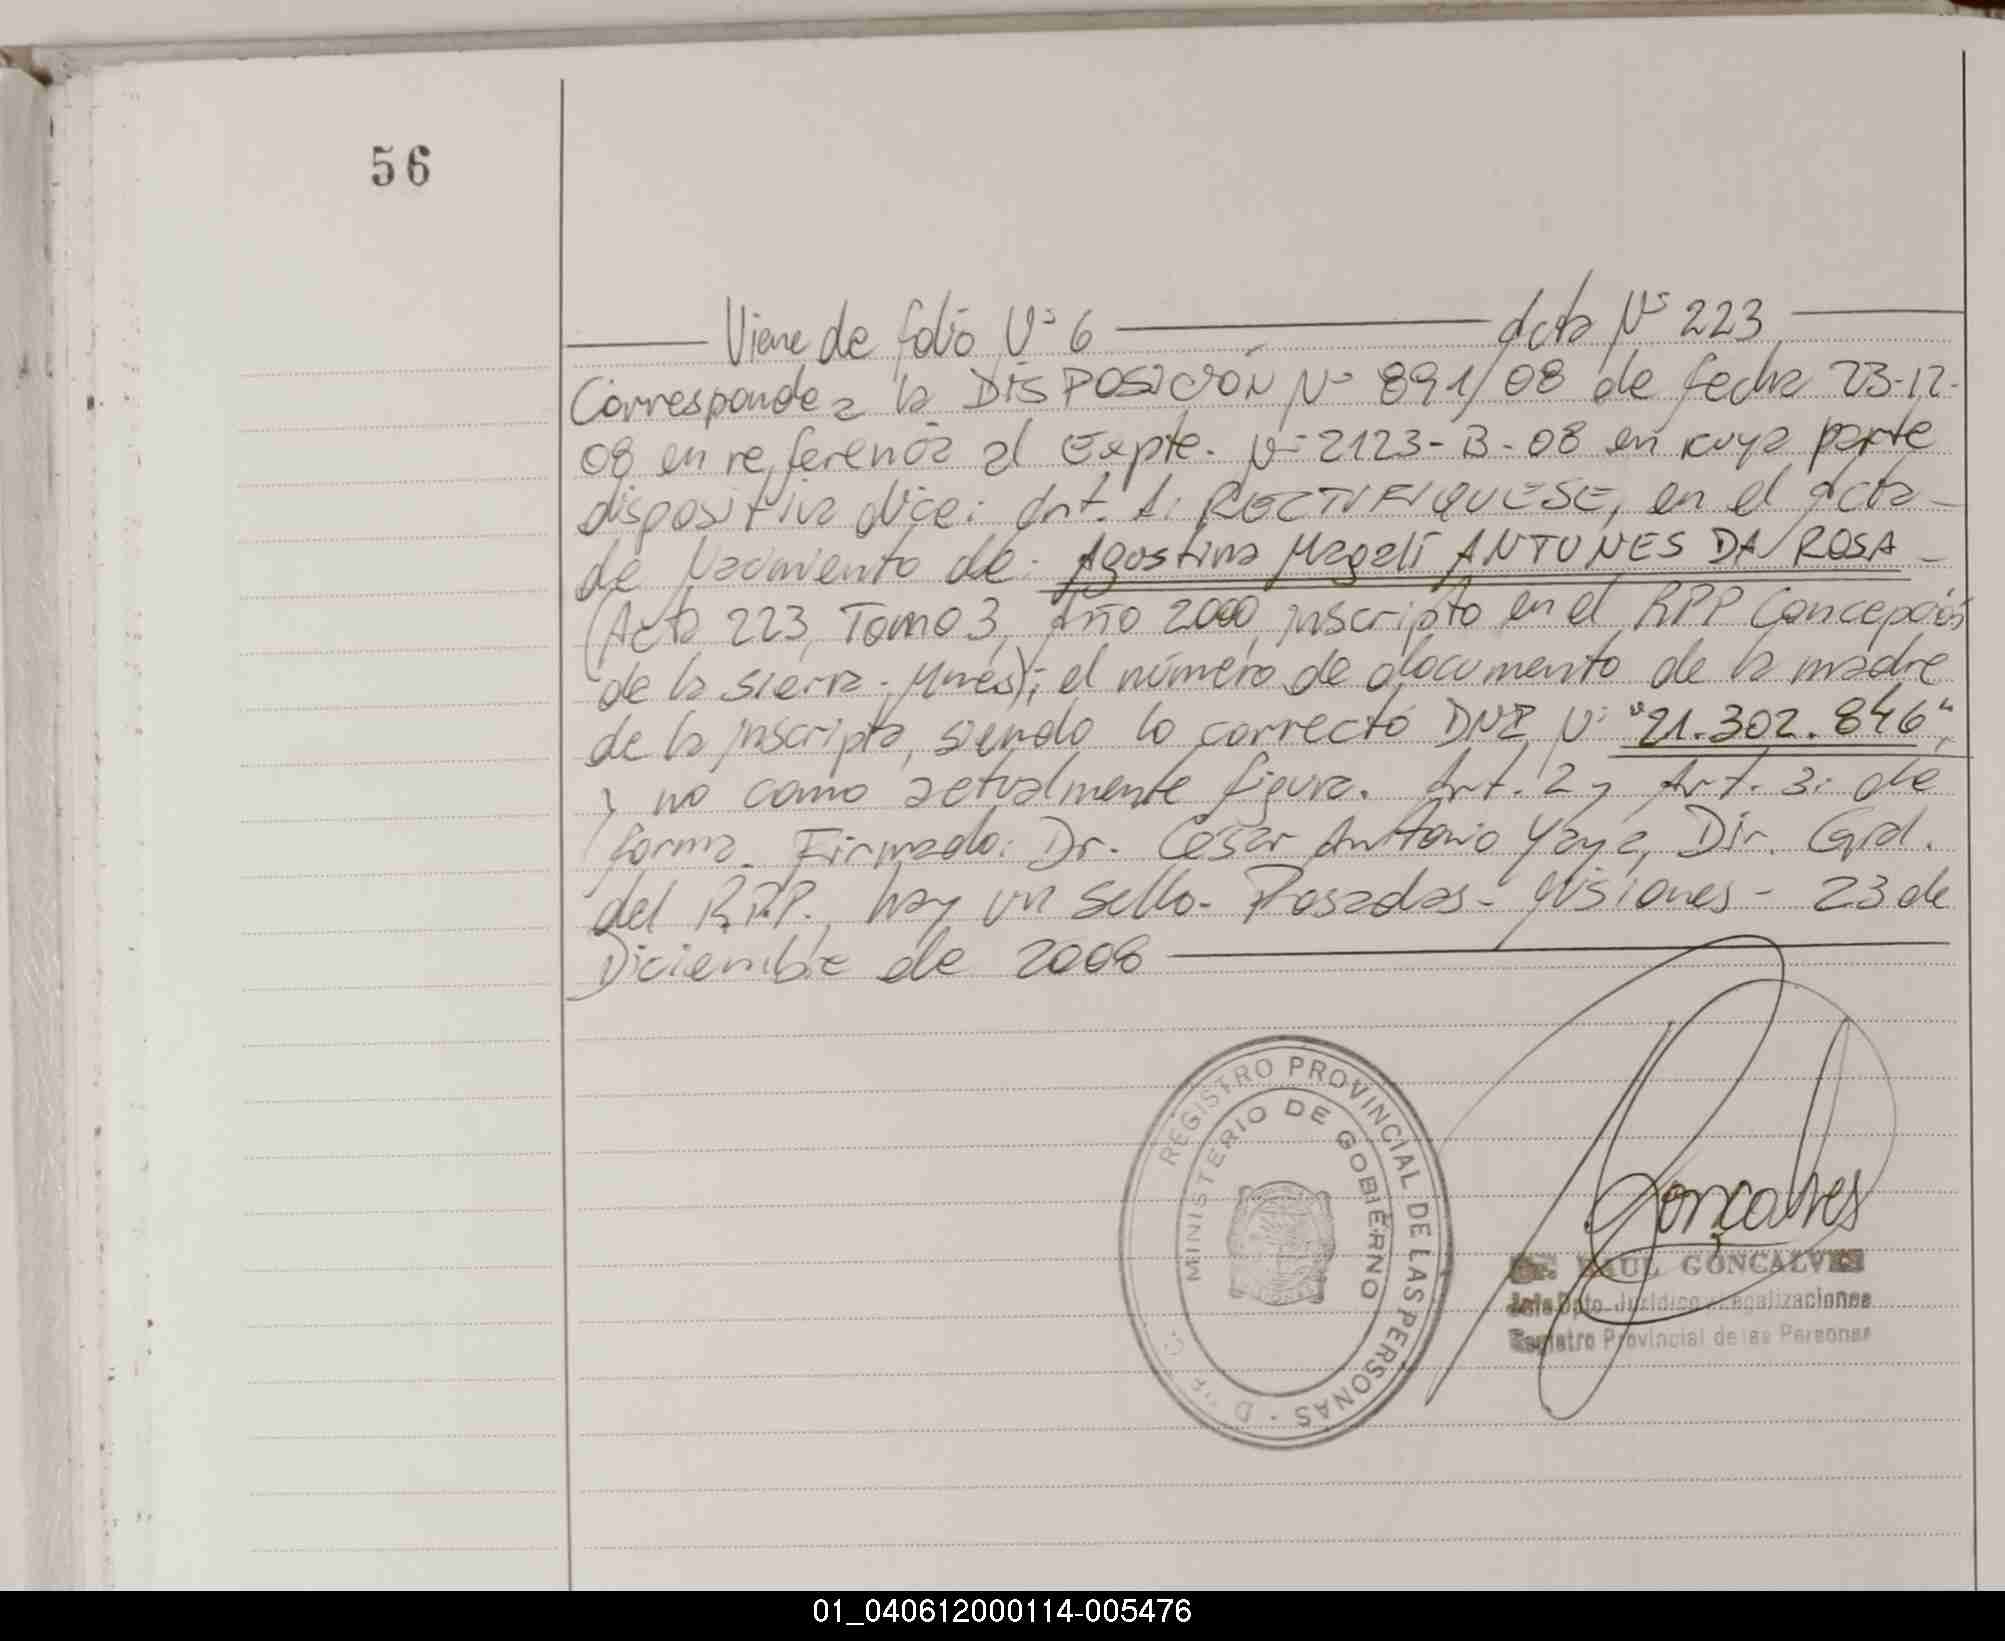 56
Viene de folio Nº 6 acta Nº 223
Corresponde a la DISPOSICIÓN Nº 891/08 de fecha 23-12-
08 en referencia al Expte. Nº 2123-B-08 en kuya parte
dispositiva dice: Art. 1: RECTIFIQUESE, en el acta
de Nacimiento de: Agostina Magali ANTUNES DA ROSA -
(Acta 223, Tomo 3, Año 2000, inscripto en el RPP Concepción
de la Sierra - Mnes); el número de documento de la madre
de la inscripta, siendo lo correcto DNI Nº "21.302.846",
y no como actualmente figura. Art. 2 y Art. 3: de
forma. Firmado: Dr. Cesar Antonio Yaya, Dir. Gral.
del R.P.P. hay un sello - Posadas - Misiones - 23 de
Diciembre de 2008
REGISTRO PROVINCIAL DE LAS PERSONAS
MINISTERIO DE GOBIERNO
Gonçalves
Dr. RAUL GONÇALVES
Jefe Dpto. Jurídico y Legalizaciones
Registro Provincial de las Personas
01_040612000114-005476